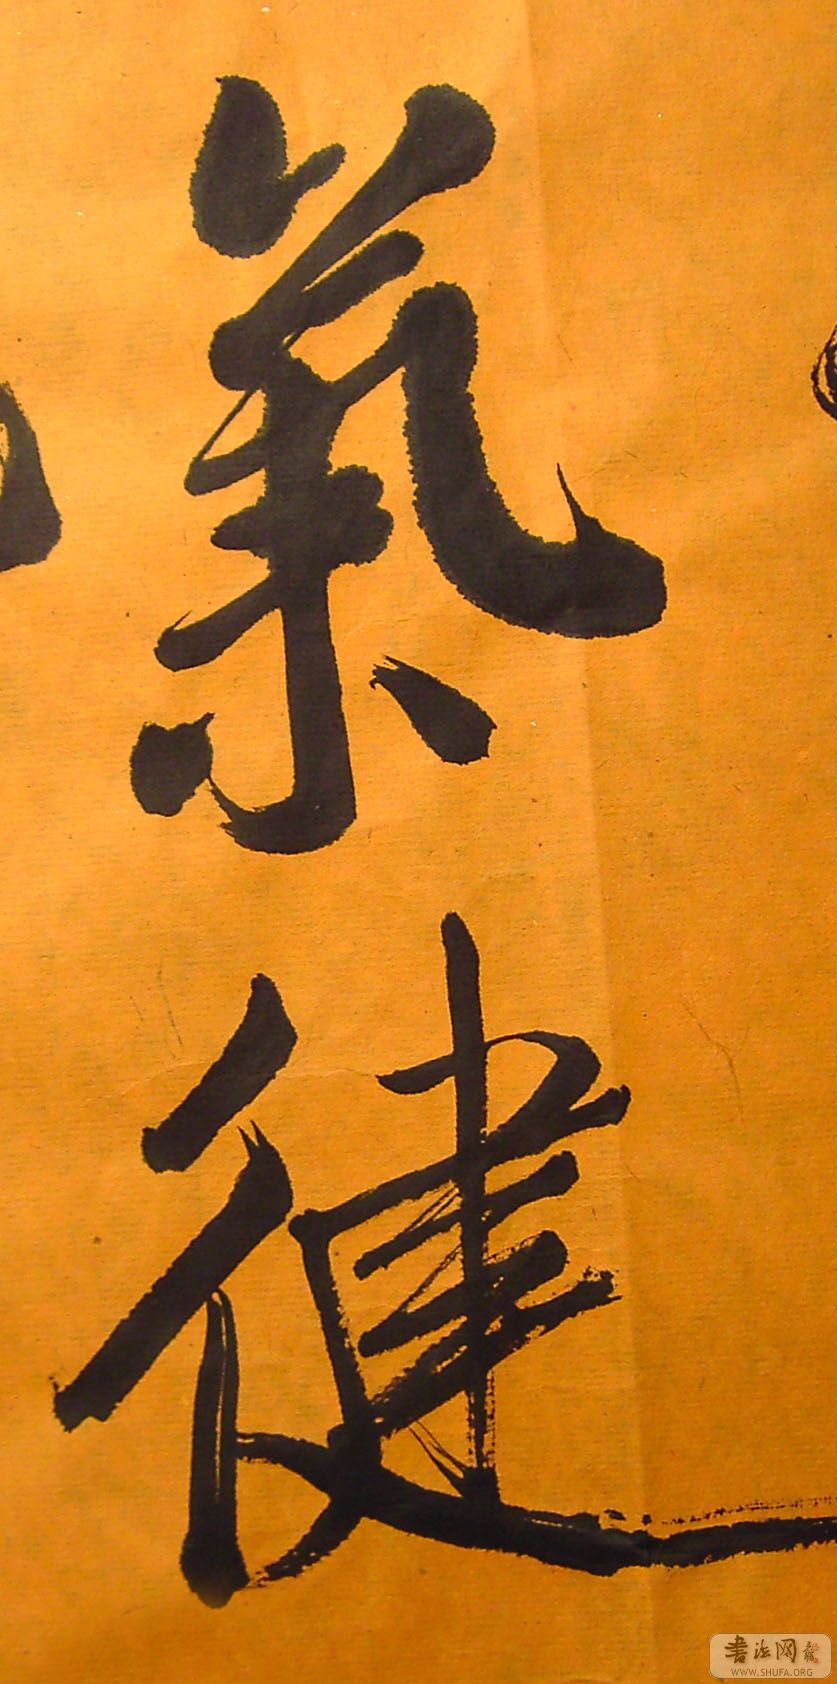 氣健
書法网
WWW.SHUFA.ORG